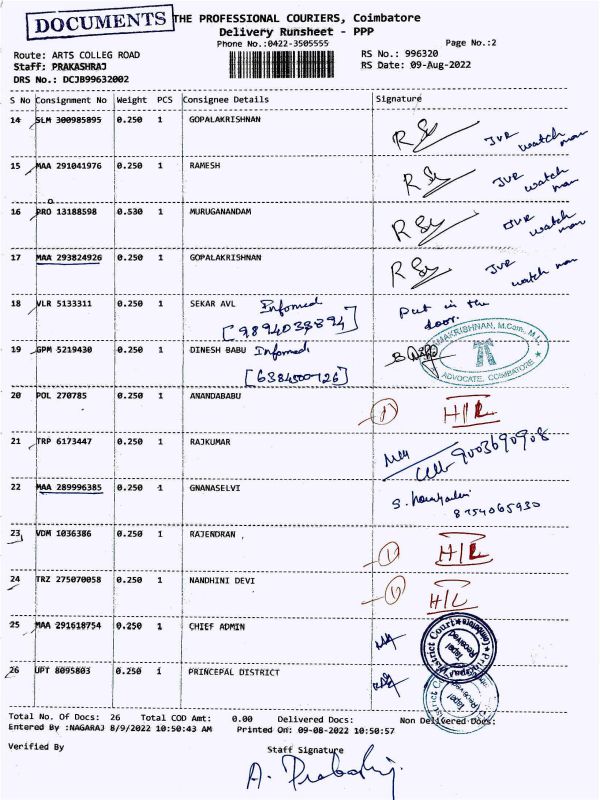 DOCUMENTS
THE PROFESSIONAL COURIERS, Coimbatore
Delivery Runsheet - PPP
Phone No.:0422-3505555
Page No.:2
Route: ARTS COLLEG ROAD
RS No.: 996320
Staff: PRAKASHRAJ
RS Date: 09-Aug-2022
DRS No.: DCJB99632002
S No Consignment No Weight PCS Consignee Details Signature
14 SLM 300985895 0.250 1 GOPALAKRISHNAN
JVR watch man
15 MAA 291041976 0.250 1 RAMESH
JVR watch man
16 PRO 13188598 0.530 1 MURUGANANDAM
JVR watch man
17 MAA 293824926 0.250 1 GOPALAKRISHNAN
JVR watch man
18 VLR 5133311 0.250 1 SEKAR AVL Infomed
Put in the door.
19 GPM 5219430 0.250 1 DINESH BABU Infomed
MAKRISHNAN, M.Com., M.L.
ADVOCATE, COIMBATORE
20 POL 270785 0.250 1 ANANDABABU
H/L
21 TRP 6173447 0.250 1 RAJKUMAR
9003690908
22 MAA 289996385 0.250 1 GNANASELVI
8754065930
23 VDM 1036386 0.250 1 RAJENDRAN
H/L
24 TRZ 275070058 0.250 1 NANDHINI DEVI
H/L
25 MAA 291618754 0.250 1 CHIEF ADMIN
Principal District Court
Tapal
Received
26 UPT 8095803 0.250 1 PRINCEPAL DISTRICT
Total No. Of Docs: 26 Total COD Amt: 0.00 Delivered Docs: Non Delivered Docs:
Entered By :NAGARAJ 8/9/2022 10:50:43 AM Printed On: 09-08-2022 10:50:57
Verified By
Staff Signature